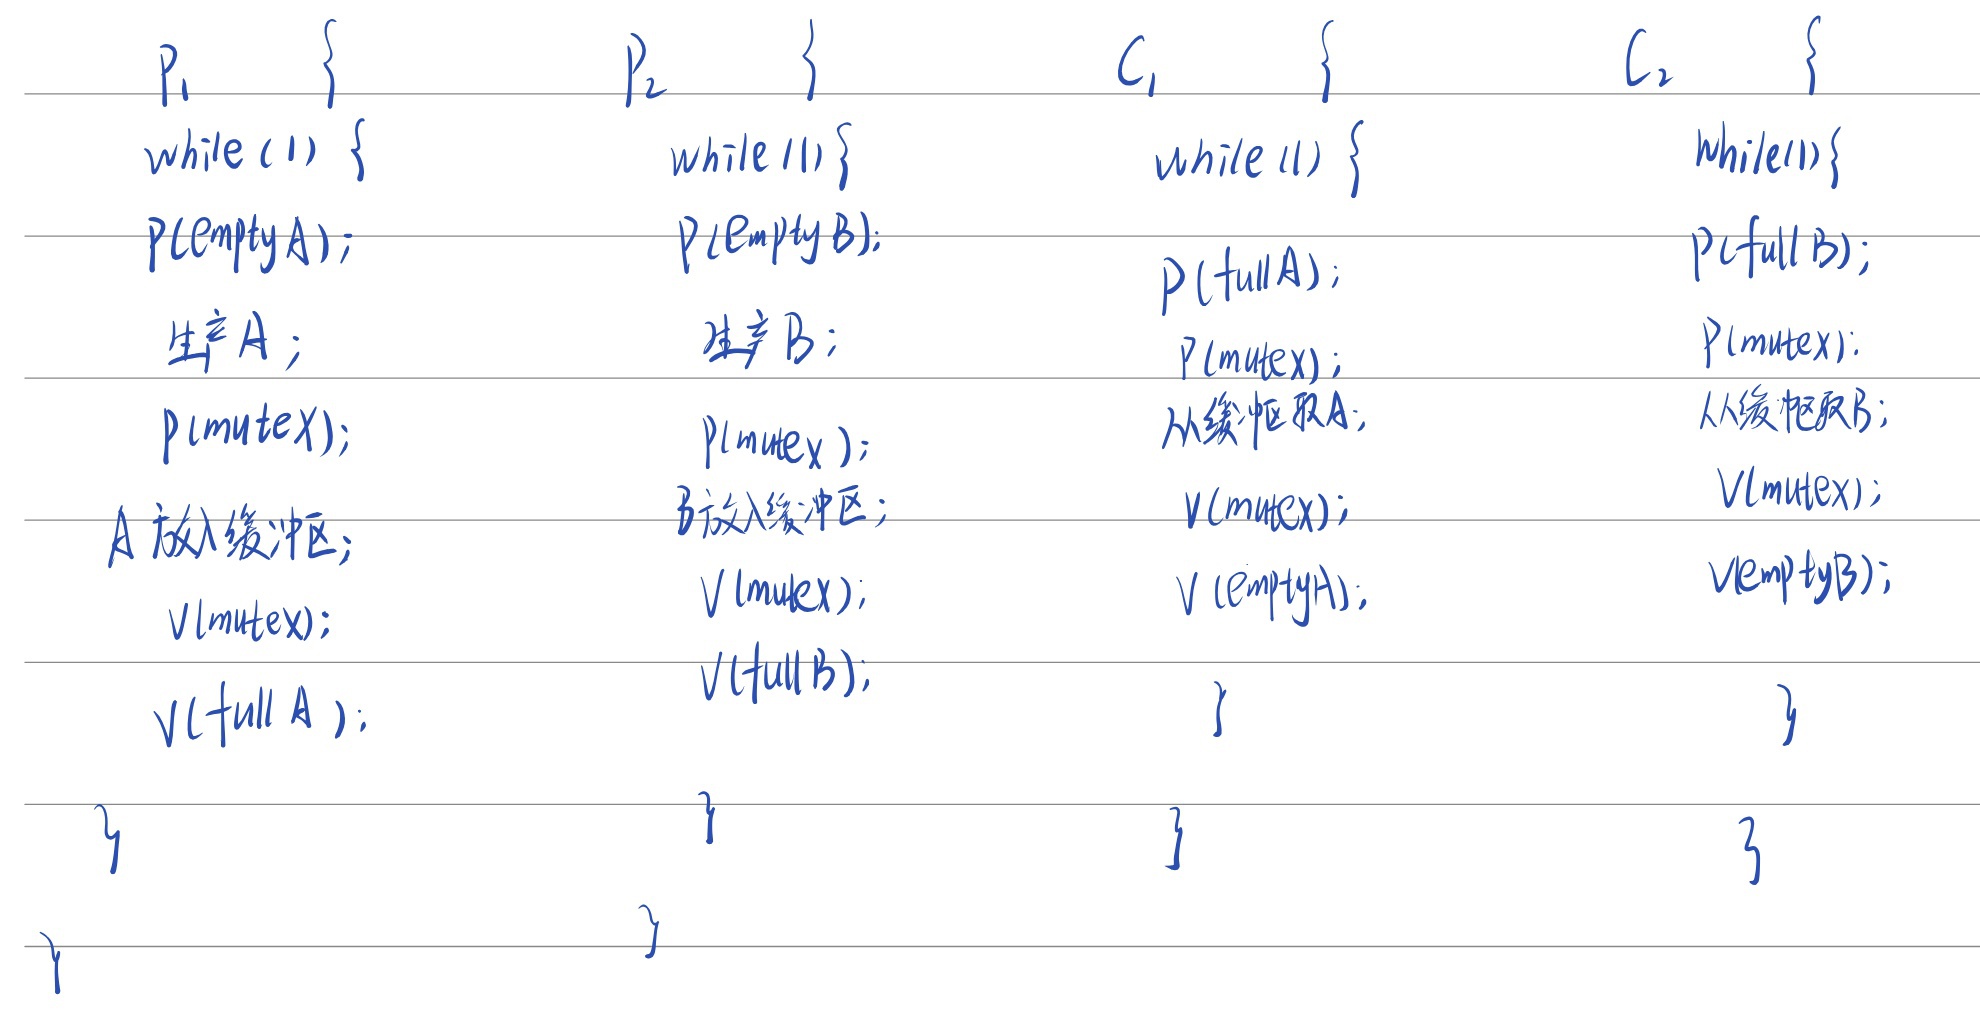 P₁ {
while (1) {
P(emptyA);
生产A;
P(mutex);
A放入缓冲区;
V(mutex);
V(fullA);
}
}
P₂ {
while (1) {
P(emptyB);
生产B;
P(mutex);
B放入缓冲区;
V(mutex);
V(fullB);
}
}
C₁ {
while (1) {
P(fullA);
P(mutex);
从缓冲区取A;
V(mutex);
V(emptyA);
}
}
C₂ {
while (1) {
P(fullB);
P(mutex);
从缓冲区取B;
V(mutex);
V(emptyB);
}
}